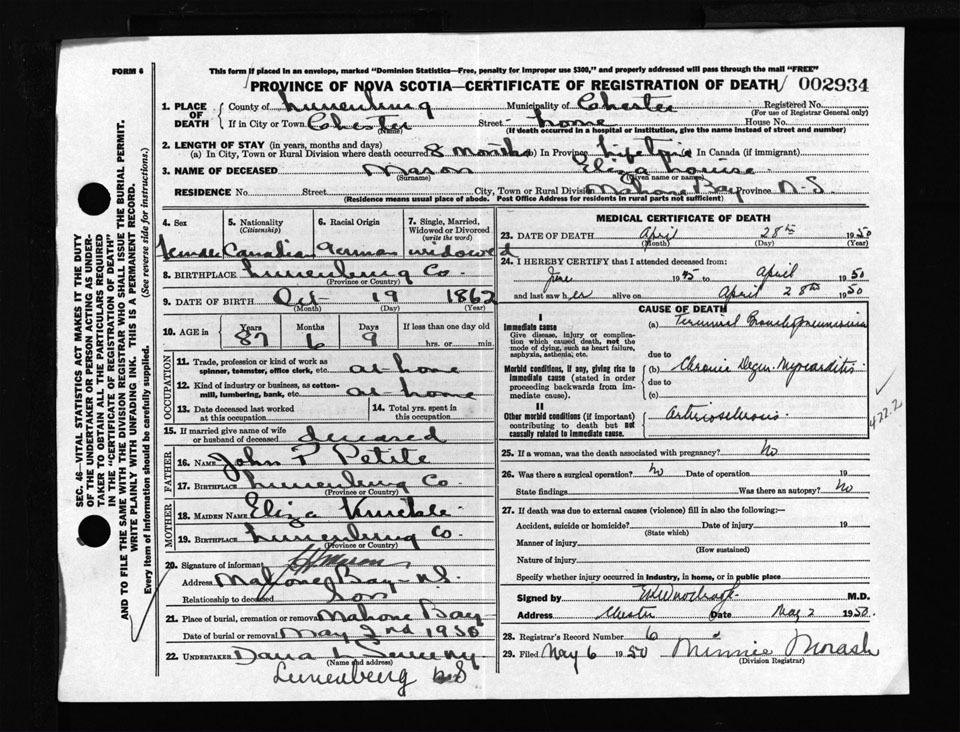 FORM 6
This form if placed in an envelope, marked "Dominion Statistics—Free, penalty for improper use $300," and properly addressed will pass through the mail "FREE"
PROVINCE OF NOVA SCOTIA—CERTIFICATE OF REGISTRATION OF DEATH 002934
1. PLACE OF DEATH
County of Lunenburg Municipality of Chester Registered No.
(For use of Registrar General only)
If in City or Town Chester Street home House No.
(Name) (If death occurred in a hospital or institution, give the name instead of street and number)
2. LENGTH OF STAY (in years, months and days)
(a) In City, Town or Rural Division where death occurred 8 months (b) In Province Lifetime In Canada (if immigrant)
3. NAME OF DECEASED Mason Eliza Louise
(Surname) (Given name or names)
RESIDENCE No. Street City, Town or Rural Division Mahone Bay Province N-S.
(Residence means usual place of abode. Post Office Address for residents in rural parts not sufficient)
4. Sex
5. Nationality (Citizenship)
6. Racial Origin
7. Single, Married, Widowed or Divorced (write the word)
Canadian German widowed
8. BIRTHPLACE Lunenburg Co.
(Province or Country)
9. DATE OF BIRTH Oct 19 1862
(Month) (Day) (Year)
10. AGE in Years Months Days If less than one day old
87 6 9 hrs. or min.
OCCUPATION
11. Trade, profession or kind of work as spinner, teamster, office clerk, etc. at home
12. Kind of industry or business, as cotton-mill, lumbering, bank, etc. at home
13. Date deceased last worked at this occupation
14. Total yrs. spent in this occupation
15. If married give name of wife or husband of deceased deceased
FATHER
16. NAME John P Petite
17. BIRTHPLACE Lunenburg Co.
(Province or Country)
MOTHER
18. MAIDEN NAME Eliza Knickle
19. BIRTHPLACE Lunenburg Co.
(Province or Country)
20. Signature of informant Mason
Address Mahone Bay - N.S.
Relationship to deceased Son
21. Place of burial, cremation or removal Mahone Bay
Date of burial or removal May 2nd 1950
22. UNDERTAKER Dana L Sweeny
(Name and address)
Lunenburg N S
MEDICAL CERTIFICATE OF DEATH
23. DATE OF DEATH April 28th 1950
(Month) (Day) (Year)
24. I HEREBY CERTIFY that I attended deceased from:
1945 to April 1950
and last saw her alive on April 28th 1950
CAUSE OF DEATH
I
Immediate cause
Give disease, injury or complication which caused death, not the mode of dying, such as heart failure, asphyxia, asthenia, etc.
(a) Terminal Bronchopneumonia
due to
Morbid conditions, if any, giving rise to immediate cause (stated in order proceeding backwards from immediate cause).
(b) Chronic Degen. Myocarditis
due to
(c)
II
Other morbid conditions (if important) contributing to death but not causally related to immediate cause.
Arteriosclerosis
422.2
25. If a woman, was the death associated with pregnancy? No
26. Was there a surgical operation? No Date of operation 19
State findings Was there an autopsy? No
27. If death was due to external causes (violence) fill in also the following:—
Accident, suicide or homicide? Date of injury 19
(State which)
Manner of injury
(How sustained)
Nature of injury
Specify whether injury occurred in industry, in home, or in public place
Signed by M.D.
Address Chester Date May 2 1950.
28. Registrar's Record Number 6
29. Filed May 6 1950 Minnie Morash
(Division Registrar)
SEC. 46—VITAL STATISTICS ACT MAKES IT THE DUTY
OF THE UNDERTAKER OR PERSON ACTING AS UNDER-
TAKER TO OBTAIN ALL THE PARTICULARS REQUIRED
IN THE "CERTIFICATE OF REGISTRATION OF DEATH"
AND TO FILE THE SAME WITH THE DIVISION REGISTRAR WHO SHALL ISSUE THE BURIAL PERMIT.
WRITE PLAINLY WITH UNFADING INK. THIS IS A PERMANENT RECORD.
Every item of information should be carefully supplied. (See reverse side for instructions.)